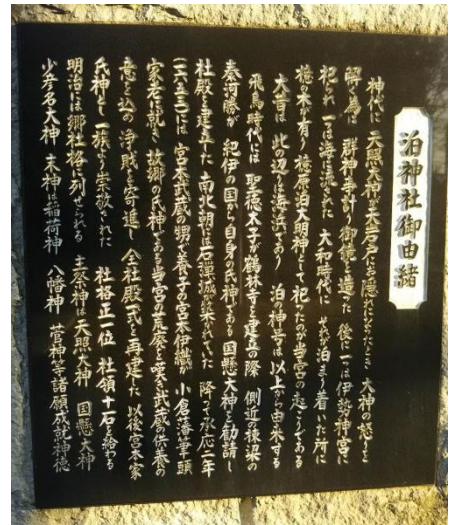 泊神社御由緒
神代に天照大神が天岩戸にお隠れになったとき 大神の怒りを
解く為に 群神事計り御鏡を造った 後に一は伊勢神宮に
祀られ 一は海に流された 大和時代に 其が泊まり着いた所に
椿の木が有り 椿原泊大明神として 祀ったのが当宮の起こりである
大昔は 此の辺は海浜であり 泊の神号は以上から由来する
飛鳥時代には 聖徳太子が鶴林寺を建立の際 側近の棟梁の
秦河勝が 紀伊の国から自身の氏神である 国懸大神を勧請し
社殿を建立した 南北朝には石弾城が築かれていた 降って承応二年
(一六五三)には 宮本武蔵の甥が養子の宮本伊織が 小倉の藩筆頭
家老に就き 故郷の氏神である当宮の荒廃を嘆き 武蔵の供養の
意を込め 浄財を寄進し 全社殿一式を再建した 以後宮本家
氏神として 一族より崇敬された 社格正一位 社領十石を給わる
明治には 郷社格に列せられる 主祭神は天照大神 国懸大神
少彦名大神 末神は稲荷神 八幡神 菅神等諸願成就神徳